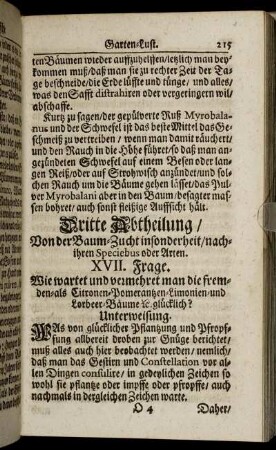 Garten-Lust. 215
ten Bäumen wieder auffzuhelffen/letzlich man bey-
kommen muß/daß man sie zu rechter Zeit der Ta-
ge beschneide/die Erde lüffte und tünge/ und alles/
was den Safft distrahiren oder vergeringern wil/
abschaffe.
Kurtz zu sagen/der gepülverte Ruß Myrobala-
nus und der Schwefel ist das beste Mittel das Ge-
schmeiß zu vertreiben/ wenn man damit räuchert/
und den Rauch in die Höhe führet/so daß man an-
gezündeten Schwefel auf einem Besen oder lan-
gen Reiß/oder auf Strohwisch anzündet/und sol-
chen Rauch um die Bäume gehen lässet/das Pul-
ver Myrobalani aber in den Baum/besagter mas-
sen bohret/auch sonst fleißige Auffsicht hält.
Dritte Abtheilung/
Von der Baum-Zucht insonderheit/nach
ihren Speciebus oder Arten.
XVII. Frage.
Wie wartet und vermehret man die frem-
den-als Citronen-Pomerantzen-Limonien-und
Lorbeer-Bäume ꝛc. glücklich?
Unterweisung.
WAs von glücklicher Pflantzung und Pfropf-
fung allbereit droben zur Gnüge berichtet/
muß alles auch hier beobachtet werden/ nemlich/
daß man das Gestirn und Constellation vor al-
len Dingen consulire/ in gedeylichen Zeichen so
wohl sie pflantze oder impffe oder pfropffe/ auch
nachmals in dergleichen Zeichen warte.
O 4 Daher/